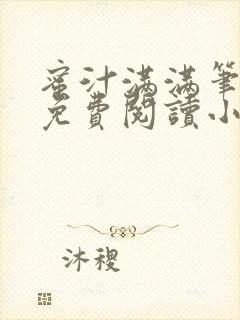 蜜汁滿滿筆
免費閱讀小
沐稷